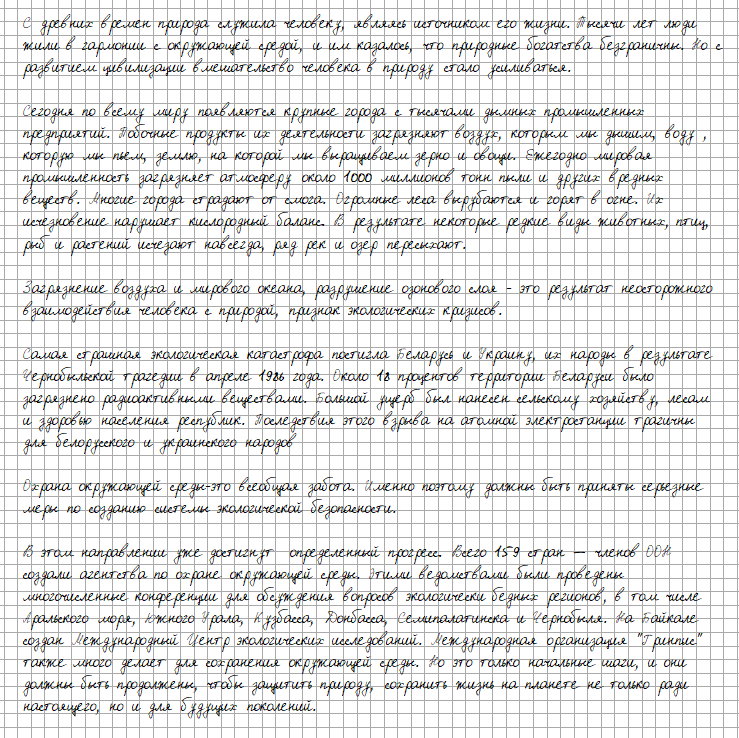 С древних времен природа служила человеку, являясь источником его жизни. Тысячи лет люди
жили в гармонии с окружающей средой, и им казалось, что природные богатства безграничны. Но с
развитием цивилизации вмешательство человека в природу стало усиливаться.
Сегодня по всему миру появляются крупные города с тысячами дымных промышленных
предприятий. Побочные продукты их деятельности загрязняют воздух, которым мы дышим, воду ,
которую мы пьем, землю, на которой мы выращиваем зерно и овощи. Ежегодно мировая
промышленность загрязняет атмосферу около 1000 миллионов тонн пыли и других вредных
веществ. Многие города страдают от смога. Огромные леса вырубаются и горят в огне. Их
исчезновение нарушает кислородный баланс. В результате некоторые редкие виды животных, птиц,
рыб и растений исчезают навсегда, ряд рек и озер пересыхают.
Загрязнение воздуха и мирового океана, разрушение озонового слоя - это результат неосторожного
взаимодействия человека с природой, признак экологических кризисов.
Самая страшная экологическая катастрофа постигла Беларусь и Украину, их народы в результате
Чернобыльской трагедии в апреле 1986 года. Около 18 процентов территории Беларуси было
загрязнено радиоактивными веществами. Большой ущерб был нанесен сельскому хозяйству, лесам
и здоровью населения республик. Последствия этого взрыва на атомной электростанции трагичны
для белорусского и украинского народов
Охрана окружающей среды-это всеобщая забота. Именно поэтому должны быть приняты серьезные
меры по созданию системы экологической безопасности.
В этом направлении уже достигнут определенный прогресс. Всего 159 стран — членов ООН
создали агентства по охране окружающей среды. Этими ведомствами были проведены
многочисленные конференции для обсуждения вопросов экологически бедных регионов, в том числе
Аральского моря, Южного Урала, Кузбасса, Донбасса, Семипалатинска и Чернобыля. На Байкале
создан Международный Центр экологических исследований. Международная организация "Гринпис"
также много делает для сохранения окружающей среды. Но это только начальные шаги, и они
должны быть продолжены, чтобы защитить природу, сохранить жизнь на планете не только ради
настоящего, но и для будущих поколений.